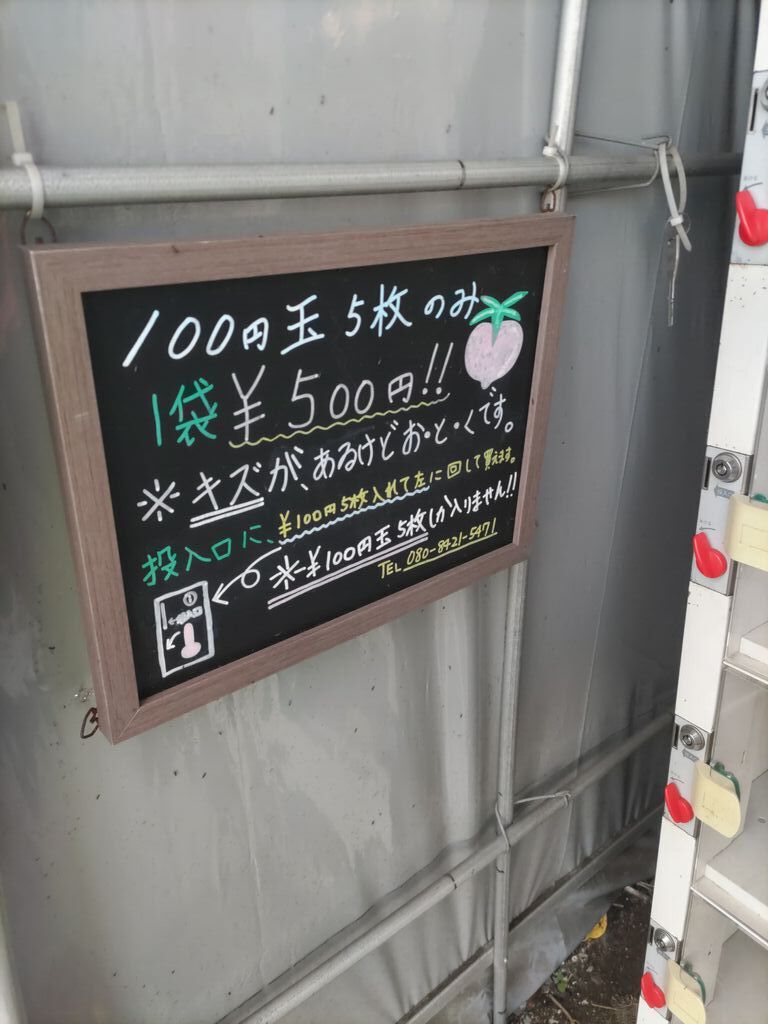 100円玉 5枚のみ
1袋¥500円!!
※キズが、あるけどお・と・くです。
投入口に、¥100円5枚入れて左に回して買えます。
※¥100円玉5枚しか入りません!!
TEL 080-8421-5471
①